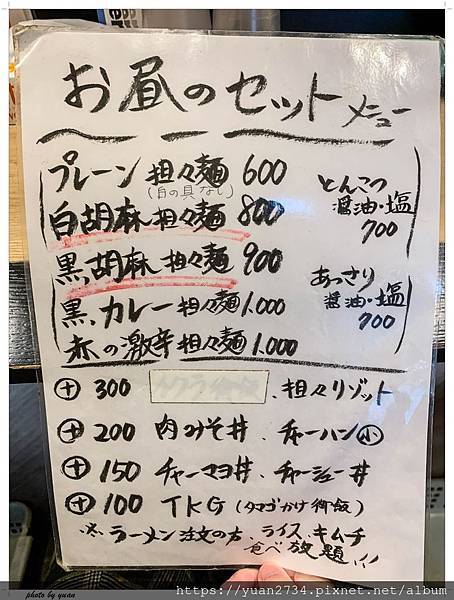 お昼のセットメニュー
プレーン担々麺 600
(白の具なし)
白胡麻担々麺 800
黒胡麻担々麺 900
黒カレー担々麺 1.000
赤の激辛担々麺 1.000
とんこつ
醤油・塩
700
あっさり
醤油・塩
700
⊕ 300 、担々リゾット
⊕ 200 肉みそ丼、チャーハン小
⊕ 150 チャーマヨ丼、チャーシュー丼
⊕ 100 TKG (タマゴかけ御飯)
※ラーメン注文の方、ライス、キムチ
食べ放題!!
photo by yuan
https://yuan2734.pixnet.net/album